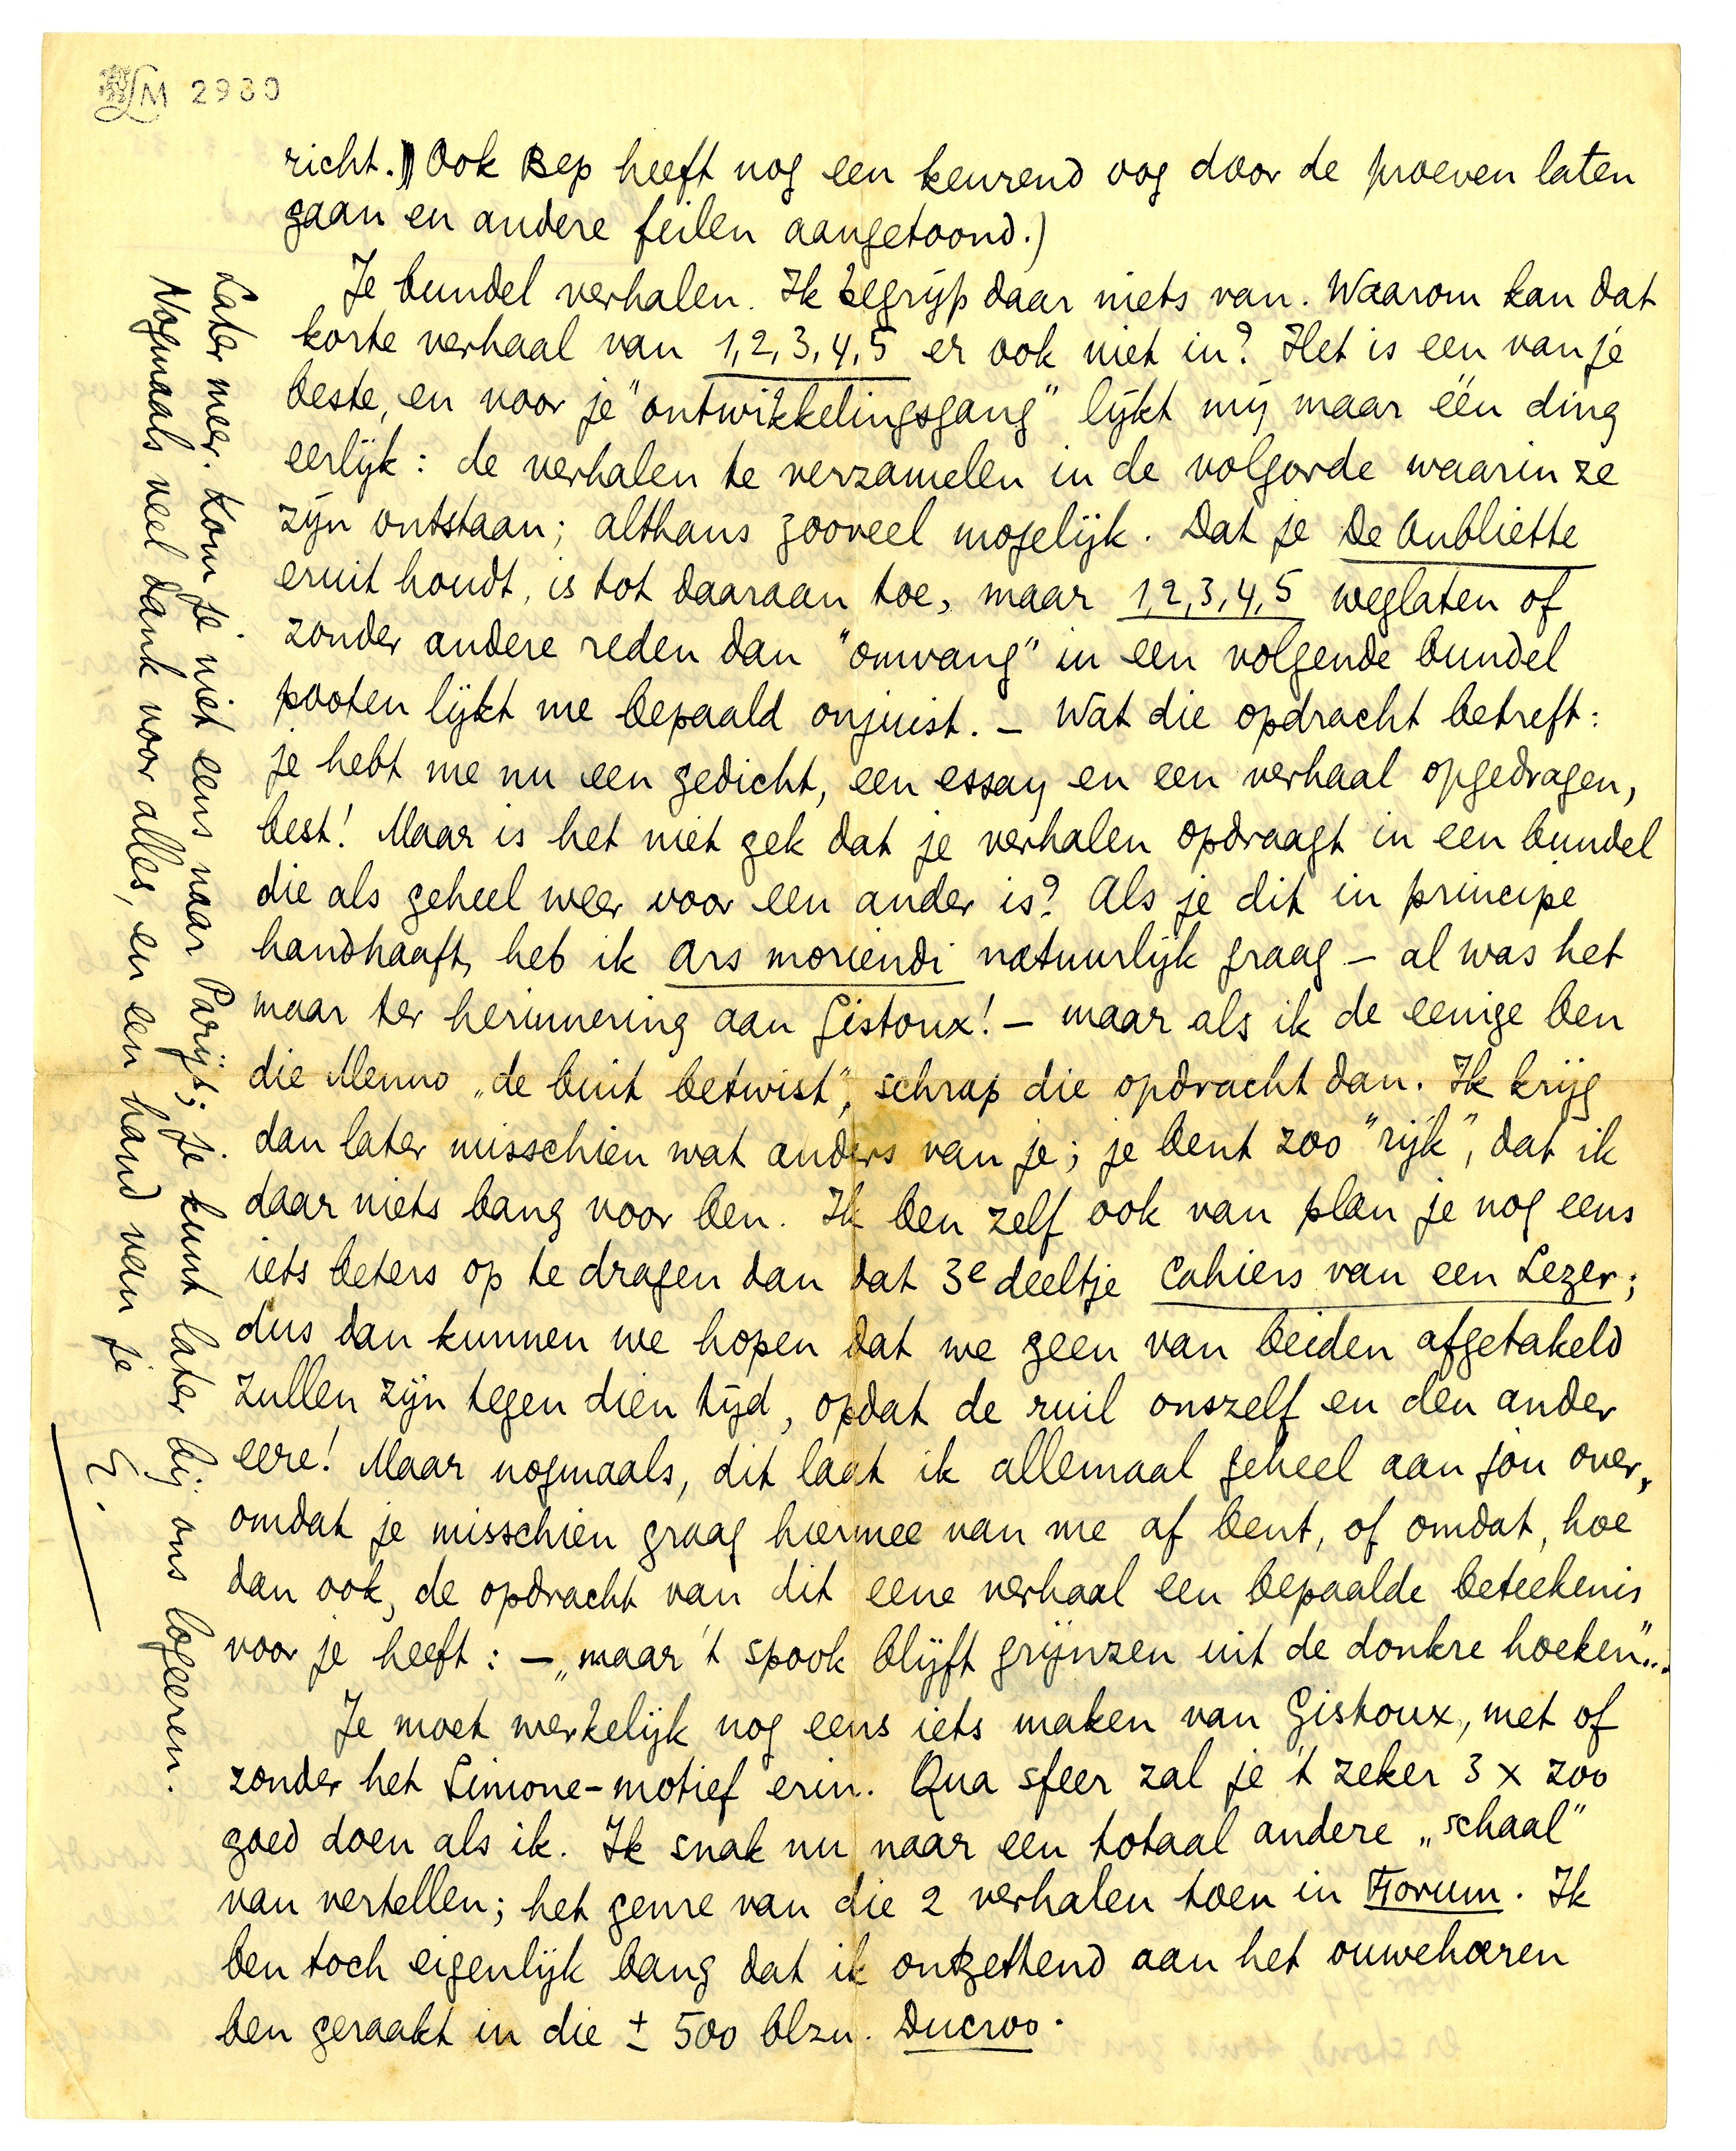 LM 2980
richt. Ook Bep heeft nog een keurend oog door de proeven laten
gaan en andere feilen aangetoond.)
Je bundel verhalen. Ik begrijp daar niets van. Waarom kan dat
korte verhaal van 1,2,3,4,5 er ook niet in? Het is een van je
beste, en voor je "ontwikkelingsgang" lijkt mij maar één ding
eerlijk: de verhalen te verzamelen in de volgorde waarin ze
zijn ontstaan; althans zooveel mogelijk. Dat je De Oubliette
eruit houdt, is tot daaraan toe, maar 1,2,3,4,5 weglaten of
zonder andere reden dan "omvang" in een volgende bundel
pooten lijkt me bepaald onjuist. – Wat die opdracht betreft:
je hebt me nu een gedicht, een essay en een verhaal opgedragen,
best! Maar is het niet gek dat je verhalen opdraagt in een bundel
die als geheel weer voor een ander is? Als je dit in principe
handhaaft, heb ik Ars moriendi natuurlijk graag – al was het
maar ter herinnering aan Gistoux! – maar als ik de eenige ben
die Menno „de buit betwist", schrap die opdracht dan. Ik krijg
dan later misschien wat anders van je; je bent zoo "rijk", dat ik
daar niets bang voor ben. Ik ben zelf ook van plan je nog eens
iets beters op te dragen dan dat 3e deeltje Cahiers van een Lezer;
dus dan kunnen we hopen dat we geen van beiden afgetakeld
zullen zijn tegen dien tijd, opdat de ruil onszelf en den ander
eere! Maar nogmaals, dit laat ik allemaal geheel aan jou over,
omdat je misschien graag hiermee van me af bent, of omdat, hoe
dan ook, de opdracht van dit eene verhaal een bepaalde beteekenis
voor je heeft: – „maar 't spook blijft grijnzen uit de donkre hoeken"...
Je moet werkelijk nog eens iets maken van Gistoux, met of
zonder het Simone-motief erin. Qua sfeer zal je 't zeker 3 x zoo
goed doen als ik. Ik snak nu naar een totaal andere „schaal"
van vertellen; het genre van die 2 verhalen toen in Forum. Ik
ben toch eigenlijk bang dat ik ontzettend aan het ouwehoeren
ben geraakt in die ± 500 blzn. Ducroo.
Later meer. Kom je niet eens naar Parijs; je kunt later bij ons logeeren.
Nogmaals veel dank voor alles, en een hand van je
E.